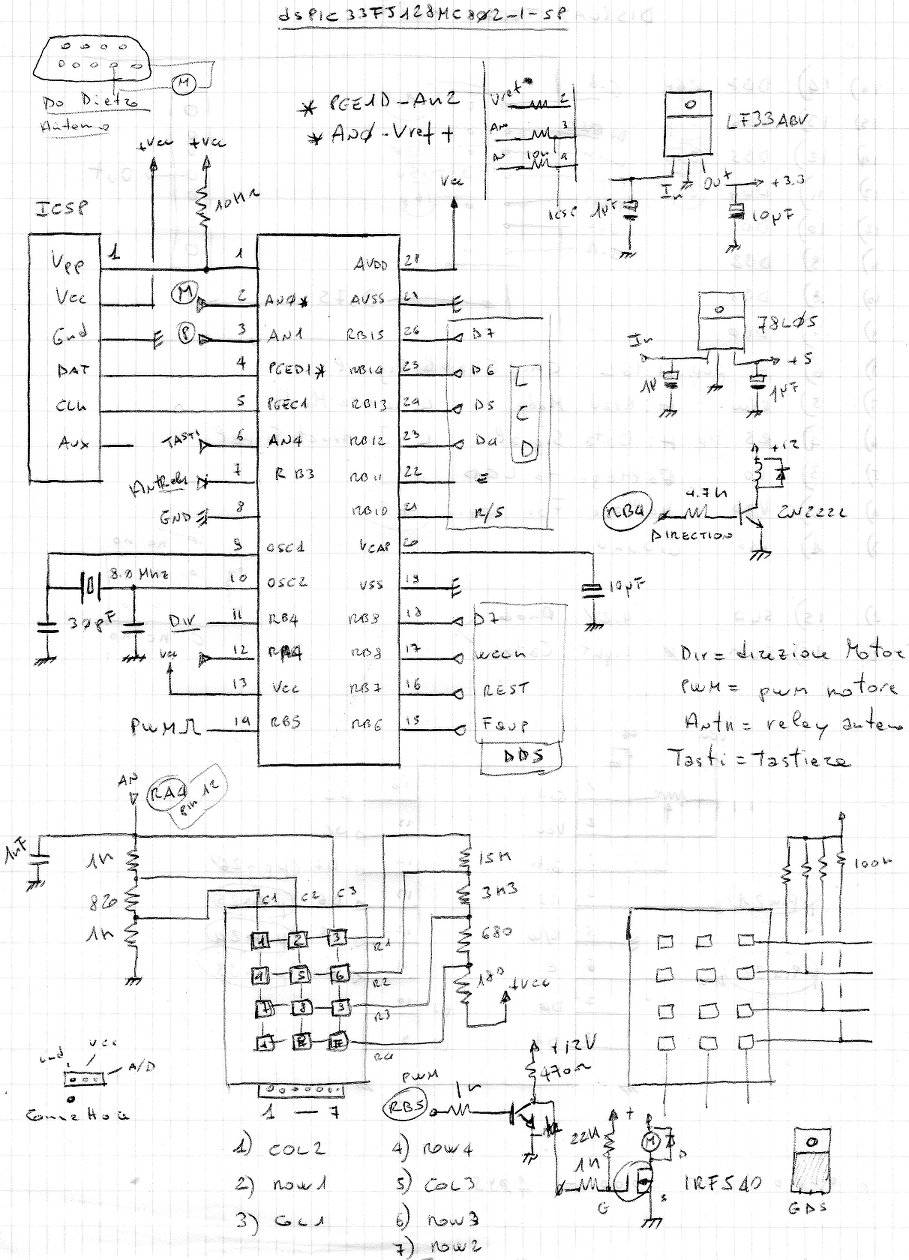 dsPIC33FJ128MC802-I-SP
M
Da Dietro
Antenna
* PGE1D-An2
* ANØ-Vref+
Vref*
2
AN
3
10K
AN
4
ICSP
LF33ABV
In
Out
+3.3
1µF
10µF
+Vcc
+Vcc
10KΩ
Vcc
ICSP
Vpp
1
Vcc
Gnd
DAT
CLK
Aux
1
M
2
ANØ*
P
3
AN1
4
PGED1*
5
PGEC1
TASTI
6
AN4
7
RB3
GND
8
9
OSC1
8.0 MHz
10
OSC2
30pF
DIV
11
RB4
Vcc
12
13
Vcc
PWM
14
RB5
AVDD
28
AVSS
RB15
26
D7
RB14
25
D6
RB13
24
D5
RB12
23
D4
RB11
22
E
RB10
21
R/S
LCD
VCAP
20
10µF
VSS
19
RB9
18
D7
RB8
17
WCLK
RB7
16
REST
RB6
15
FQUP
DDS
78L05
In
+5
1µ
1µF
+12
RB4
4.7K
2N2222
DIRECTION
Dir = direzione Motore
PWM = pwm motore
Antn = relay antenna
Tasti = Tastiera
AN
RA4
Pin 12
1nF
1K
820
1K
C1
C2
C3
1
2
3
R1
4
5
6
R2
7
8
9
R3
R4
15K
3K3
680
180
+Vcc
1 — 7
100K
Gnd
Vcc
A/D
Connettore
PWM
RB5
1K
+12V
470Ω
22K
1K
+
M
D
G
S
IRF540
GDS
1) COL2
2) ROW1
3) COL1
4) ROW4
5) COL3
6) ROW3
7) ROW2